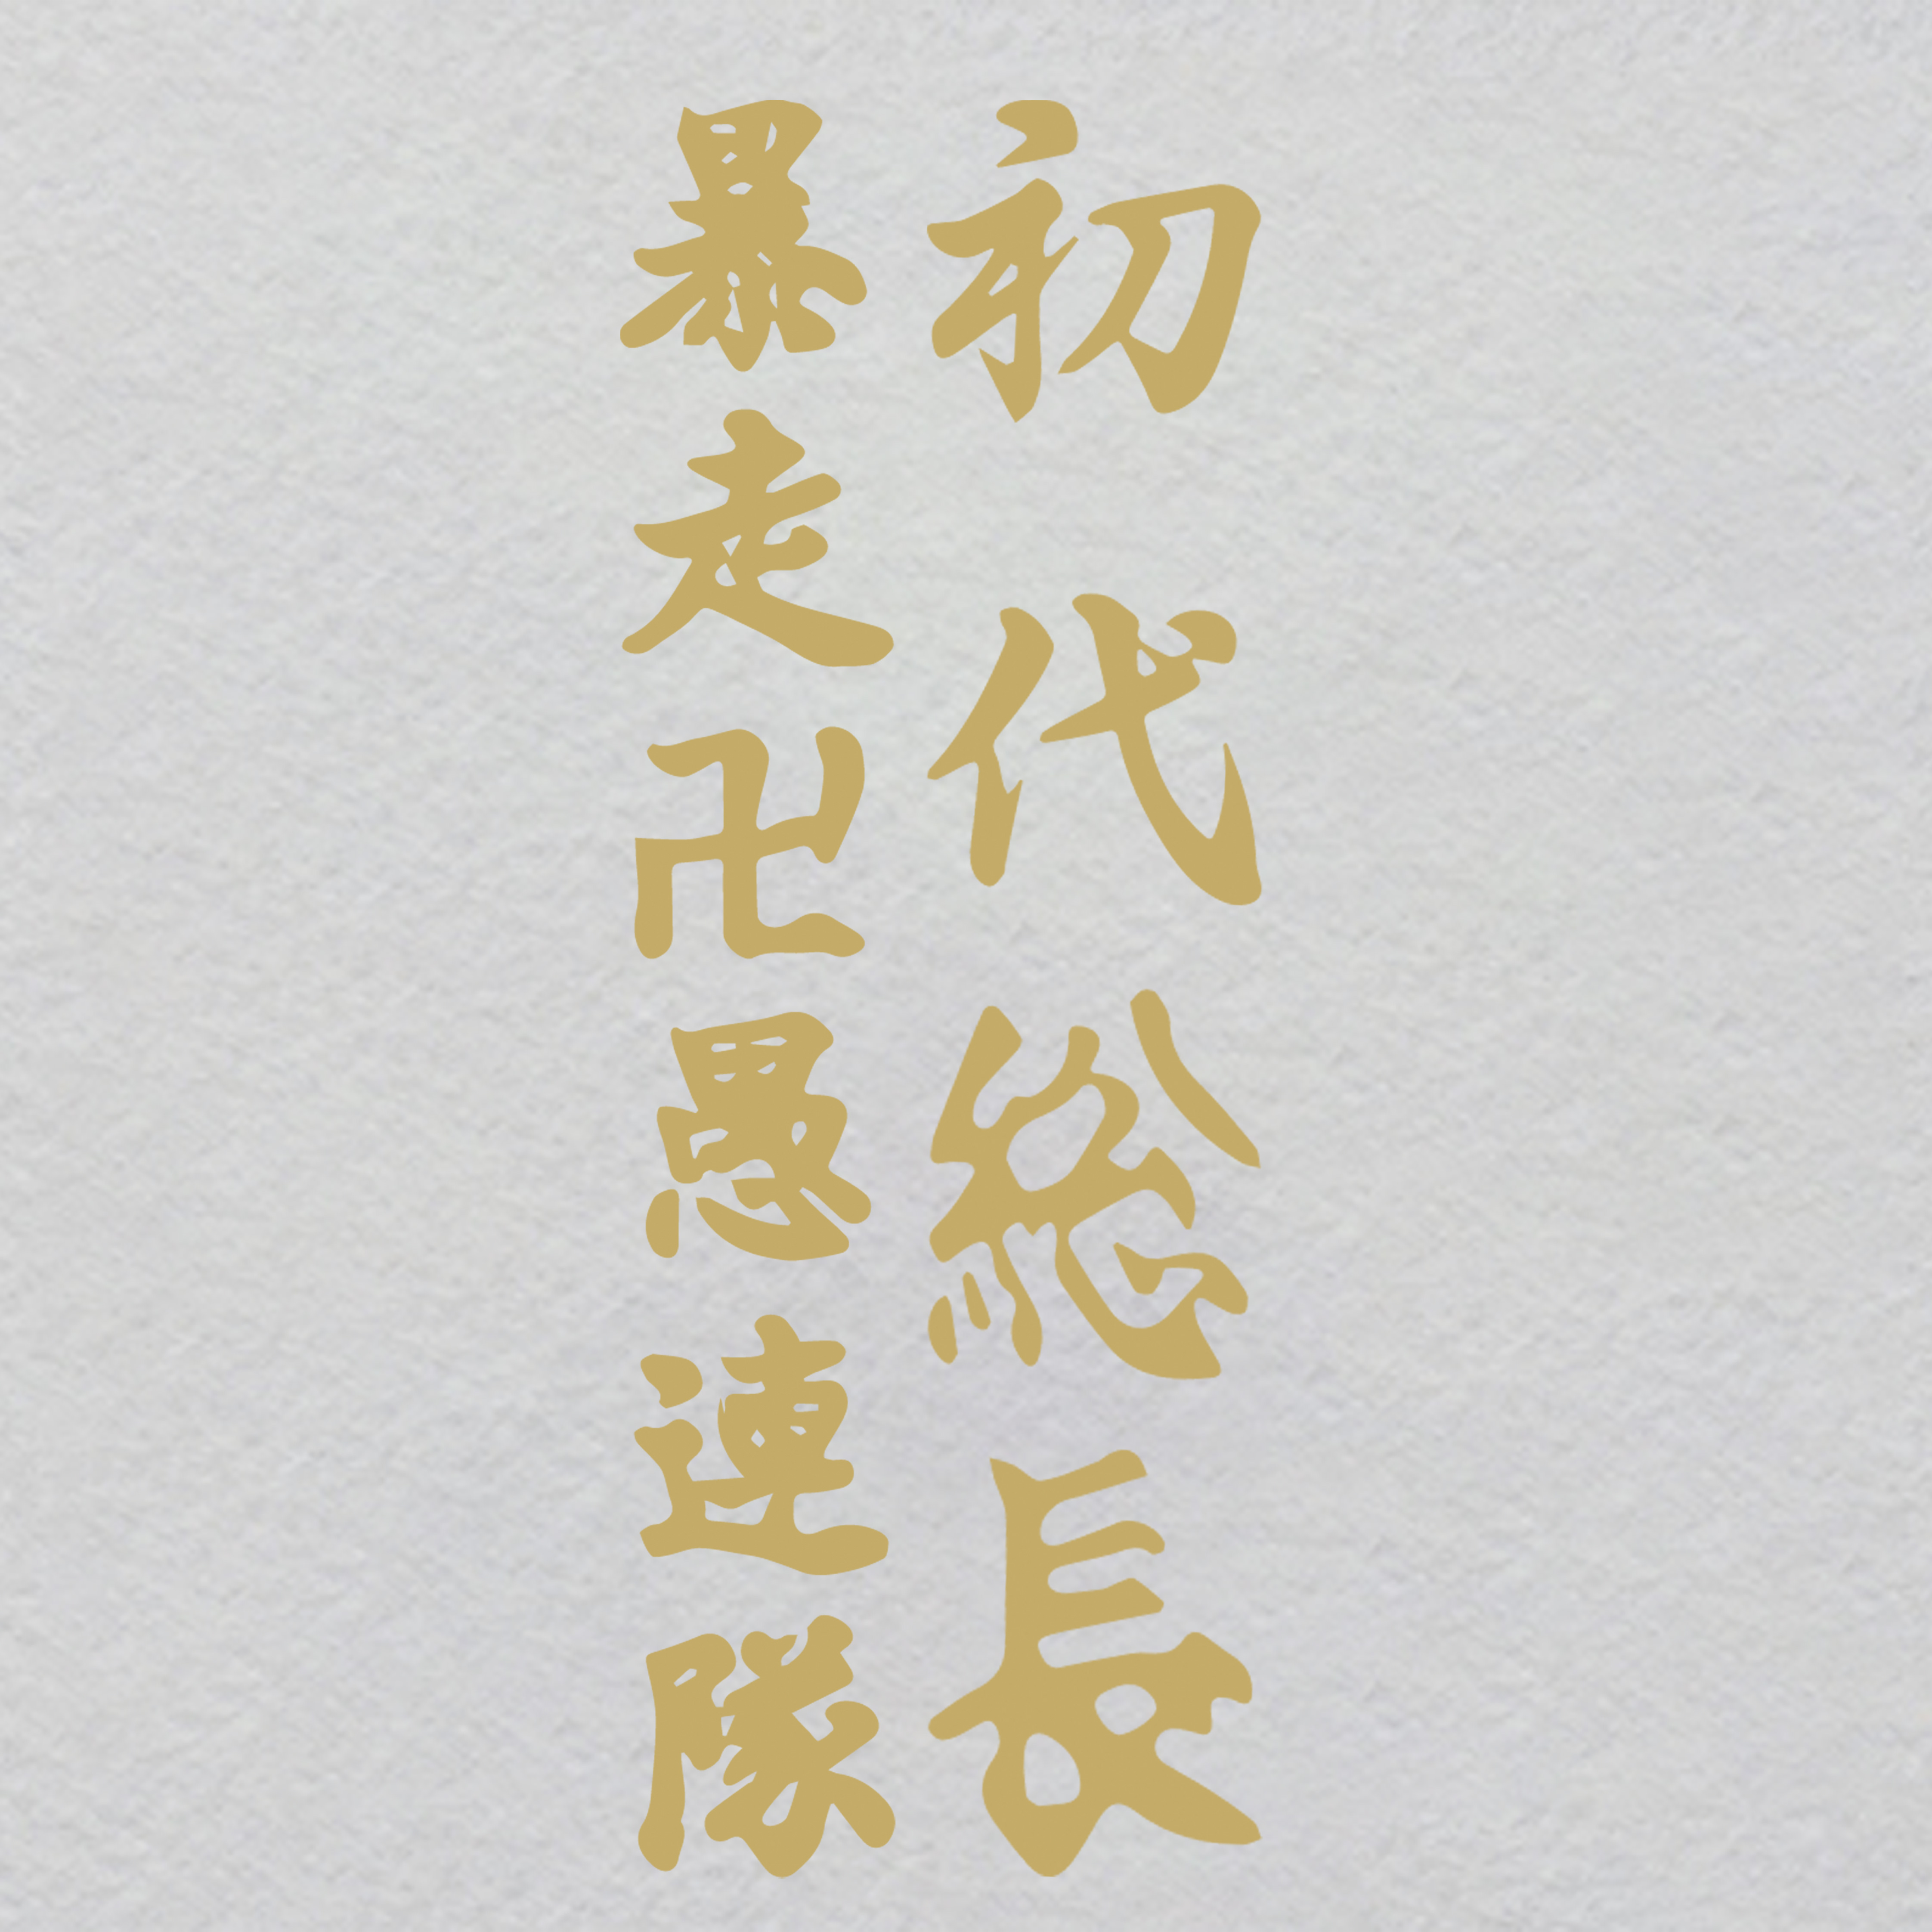 初代総長
暴走卍愚連隊